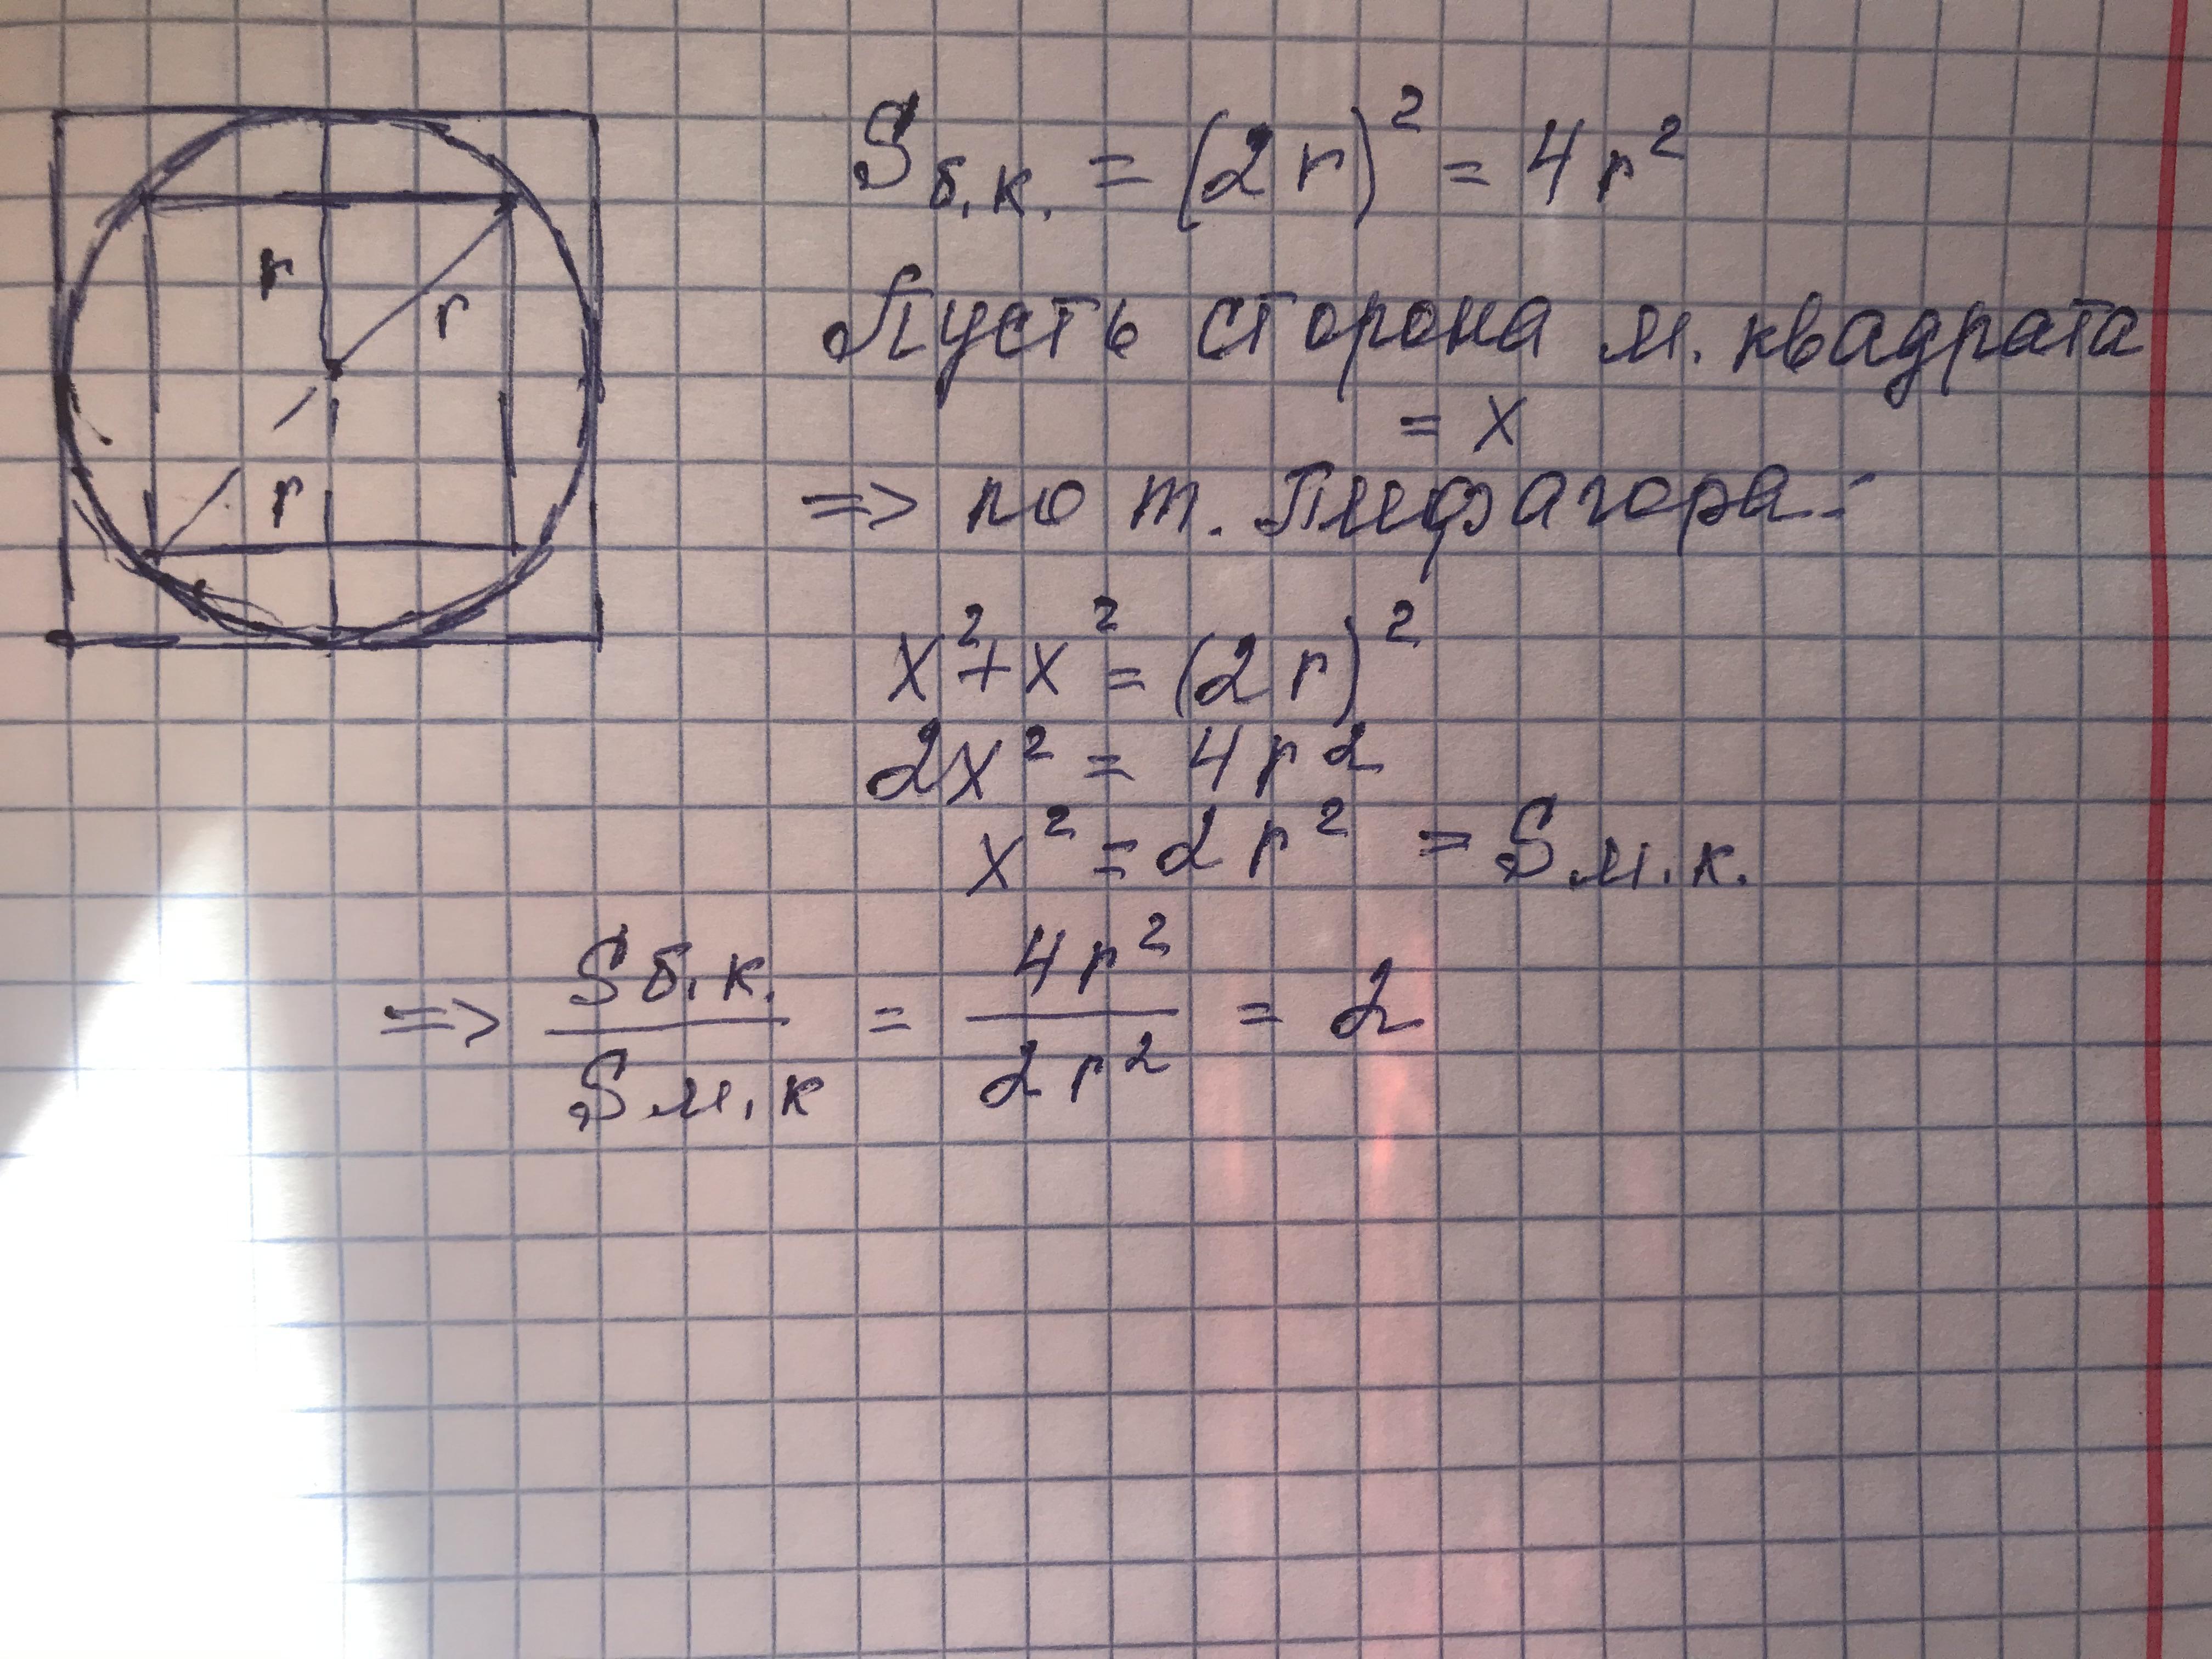 r
r
r
Sб.к. = (2r)² = 4r²
Пусть сторона м. квадрата
= x
=> по т. Пифагора:
x² + x² = (2r)²
2x² = 4r²
x² = 2r² = Sм.к.
=> Sб.к. / Sм.к = 4r² / 2r² = 2